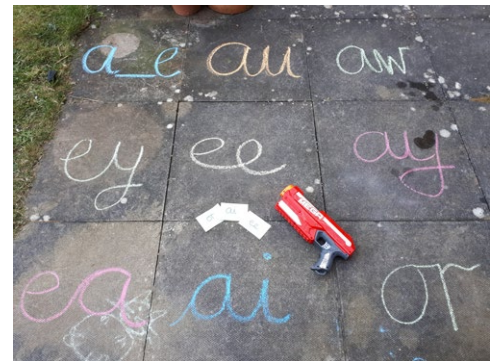 a_e au aw
ey ee ay
au ee
ea ai or